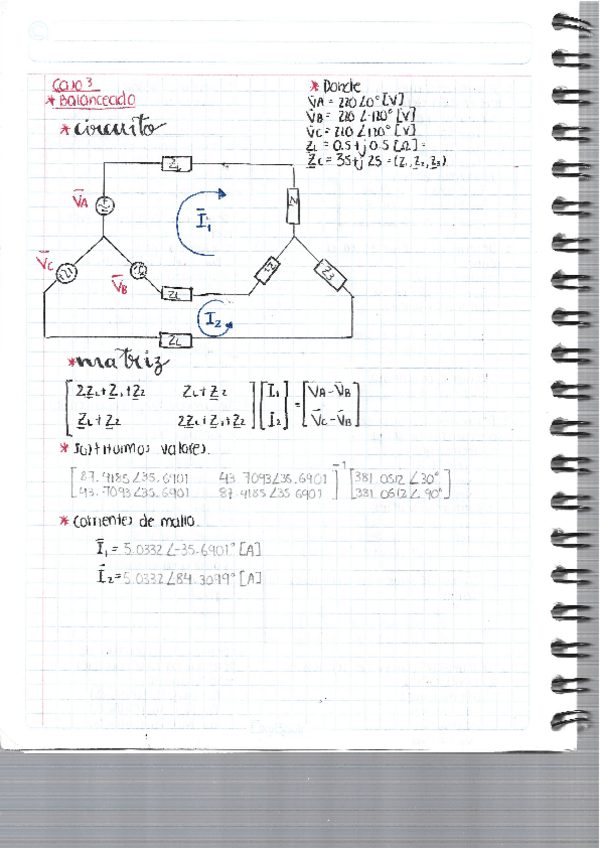 Caso 3
* Balanceado
* circuito
* Donde
V̄A = 220∠0° [V]
V̄B = 220 ∠-120° [V]
V̄C = 220 ∠120° [V]
ZL = 0.5+j0.5 [Ω] =
Zc = 35+j25 = (Z1, Z2, Z3)
ZL
V̄A
Ī1
V̄C
V̄B
Z2
Z3
ZL
Ī2
ZL
* matriz
[2ZL+Z1+Z2 ZL+Z2] [Ī1] = [V̄A-V̄B]
[ZL+Z2 2ZL+Z2+Z2] [Ī2] [V̄C-V̄B]
* Sustituimos valores.
[87.4185∠35.6901 43.7093∠35.6901]⁻¹ [381.0512∠30°]
[43.7093∠35.6901 87.4185∠35.6901] [381.0512∠90°]
* Corrientes de malla.
Ī1 = 5.0332∠-35.6901° [A]
Ī2=5.0332∠84.3099° [A]